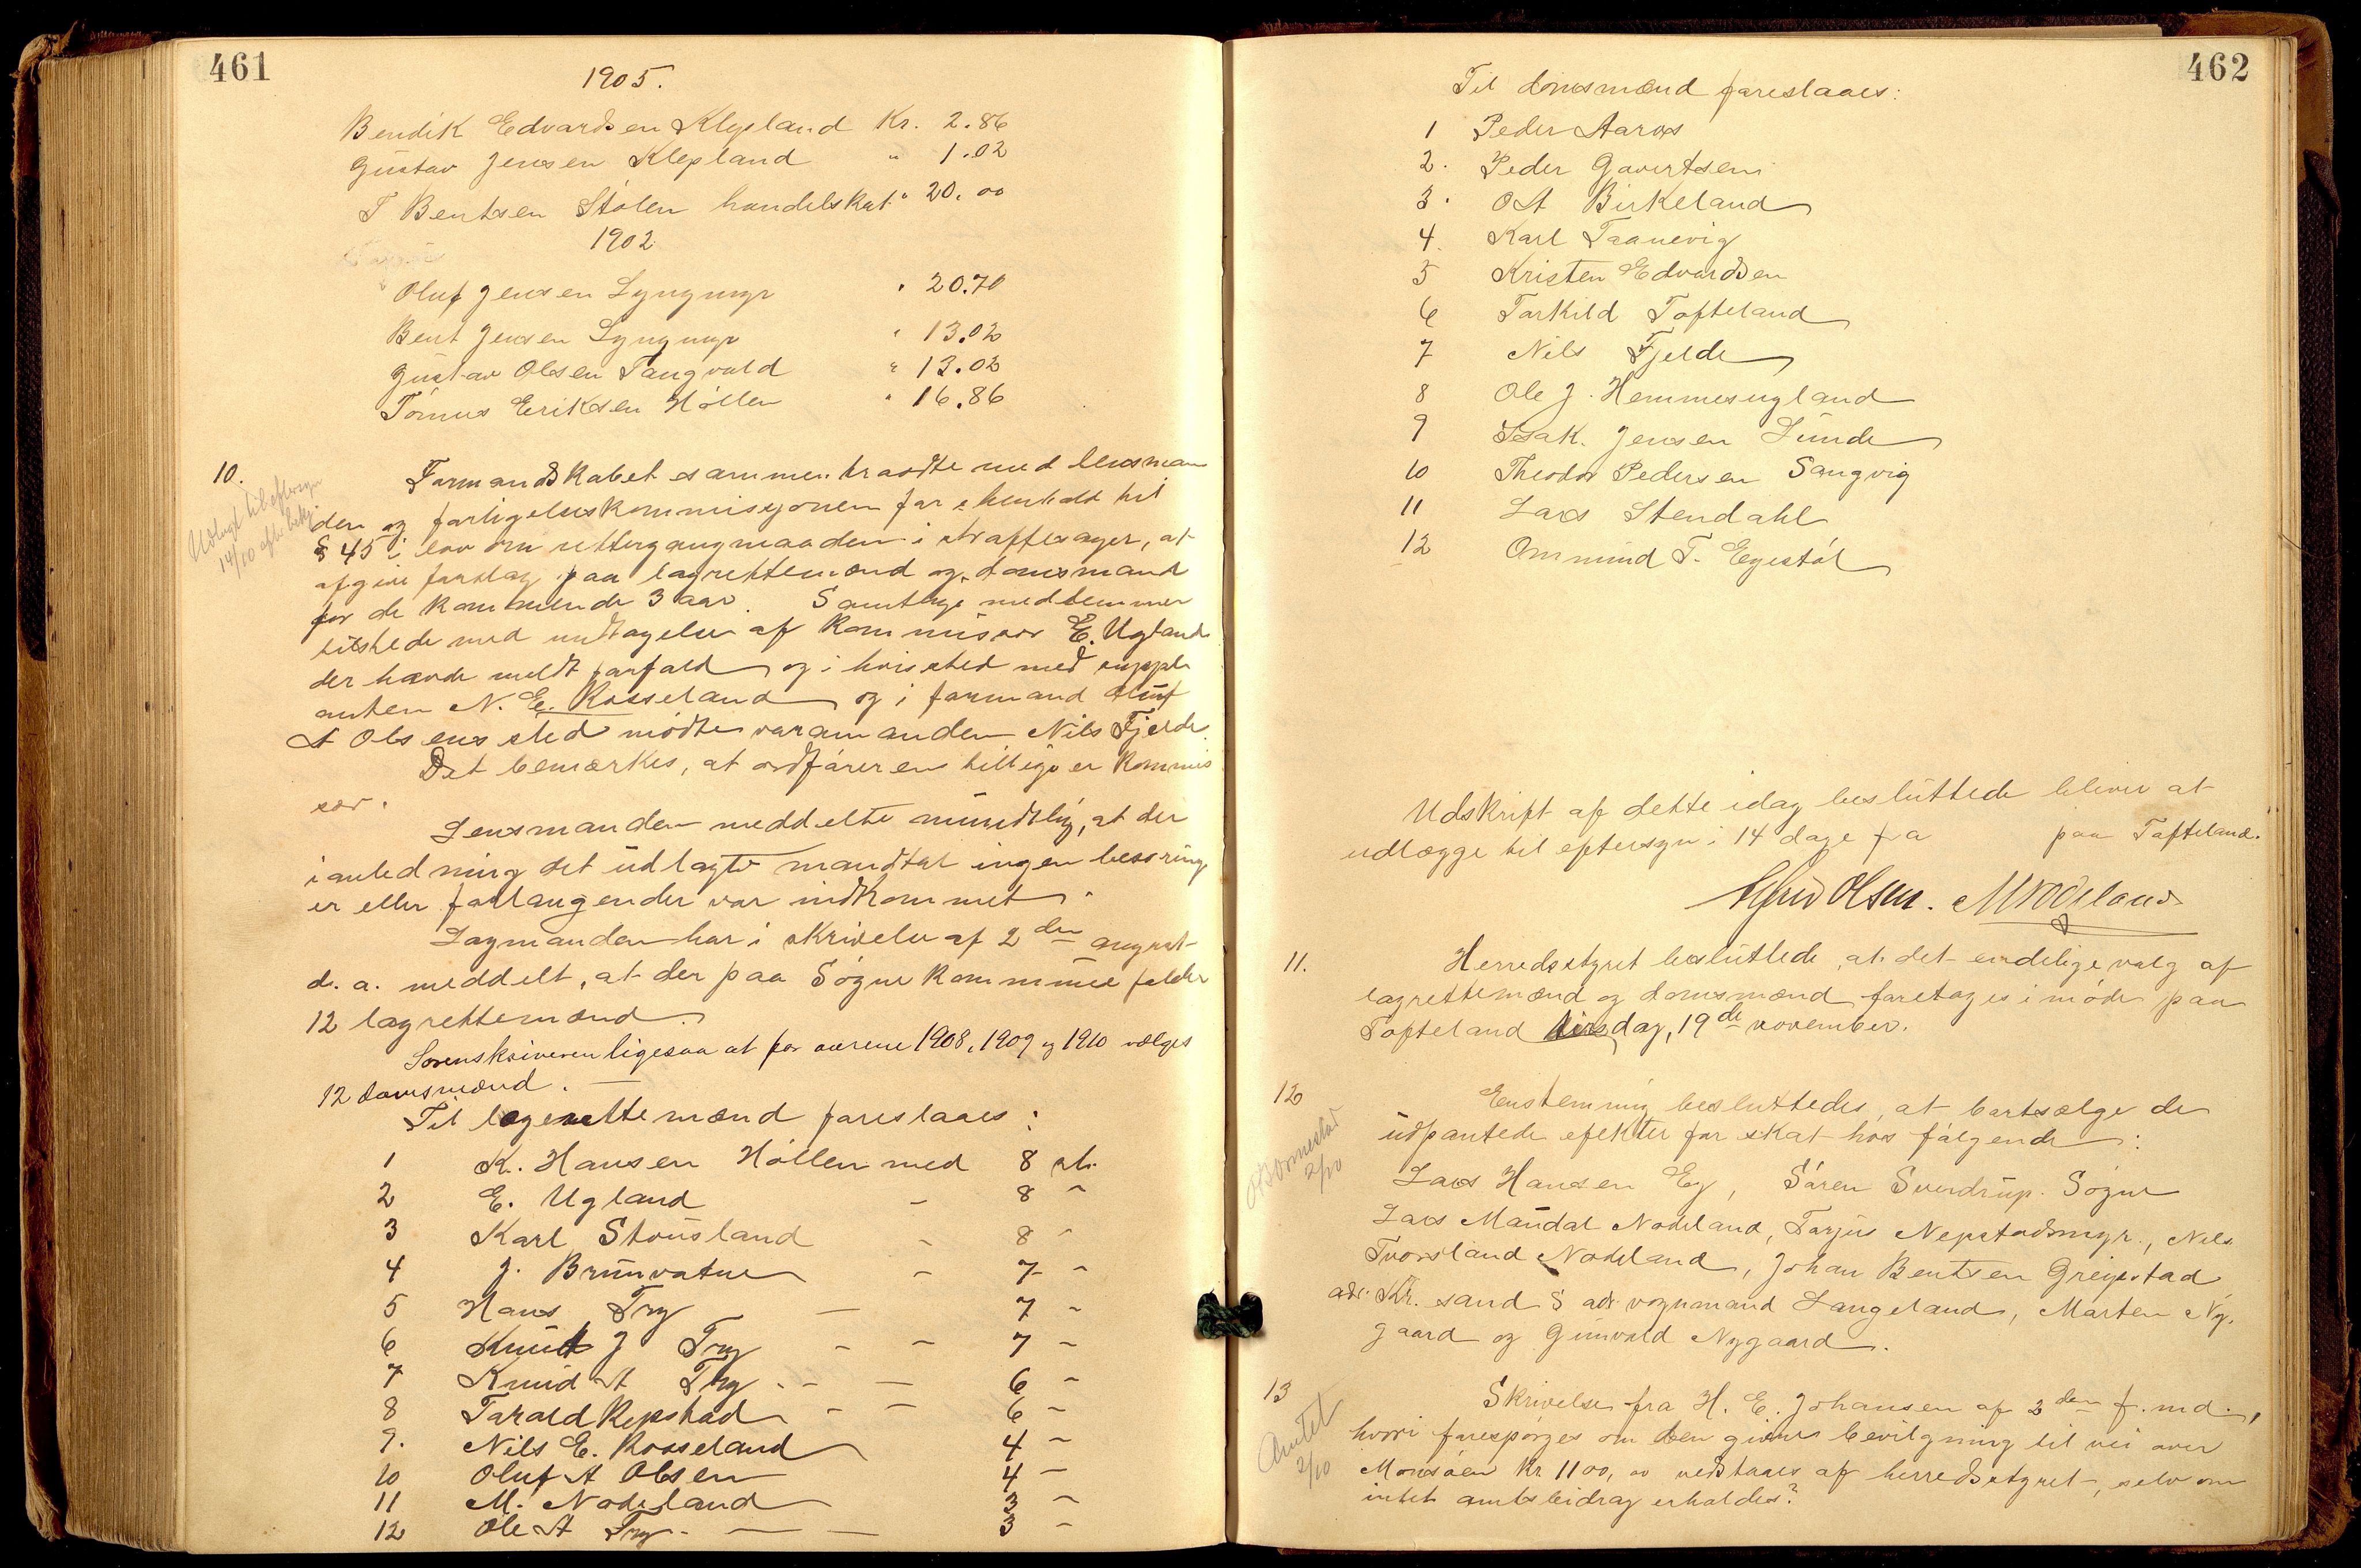 461
1905.
Bendik Edvardsen Klepland Kr. 2.86
Gustav Jensen Klepland " 1.02
T Bentsen Stólen handelskat " 20.00
1902
Oluf Jensen Lyngmyr " 20.70
Bent Jensen Lyngmyr " 13.02
Gustav Olsen Tangvald " 13.02
Tómus Eriksen Hóllen " 16.86
10.
Udlagt til eftersyn
14/10 efter bekj.
Formandskabet sammentraadte med lensman
den og forligelseskommisjonen for i henhold til
§ 45 i lov om rettergangmaaden i straffesager, at
afgive forslag paa lagrettemænd og domsmænd
for de kommende 3 aar. Samtlige medlemmer
tilstede med undtagelse af kommisær E. Ugland
der havde meldt forfald og i hvis sted mød suppli
anten N. E. Rosseland og i formand Oluf
A Olsens sted mödte varamanden Nils Fjelde.
Det bemærkes, at ordfáreren tillige er kommis
sær.
Lensmanden meddelte mundtlig, at der
i anledning det udlagte mandtal ingen besværing
er eller forlangender var indkommet.
Lagmanden har i skrivelse af 2den august
d. a. meddelt, at der paa Sógne kommune falder
12 lagrettemænd.
Sorenskriveren ligesaa at for aarene 1908, 1909 og 1910 vælges
12 domsmænd.
Til lagrettemænd foreslaaes:
1 K. Hansen Hóllen med 8 st.
2 E. Ugland - 8 "
3 Karl Stousland - 8 "
4 J. Brunvatne - 7 "
5 Hans Try - 7 "
6 Knut J Try - - 7 "
7 Knud A Try - - 6 "
8 Tarald Repstad - - 6 "
9. Nils E. Rosseland 4 "
10 Oluf A Olsen 4 "
11 M. Nodeland 3 "
12 Ole A Try - - 3 "
462
Til domsmænd foreslaaes:
1 Peder Aaros
2. Peder Gavertsen
3. O A Birkeland
4. Karl Taanevig
5 Kristen Edvardsen
6 Torkild Tofteland
7 Nils Fjelde
8 Ole J. Hemmesugland
9 Isak. Jensen Lunde
10 Theodor Pedersen Sangvig
11 Lars Stendahl
12 Ommund T. Egestól
Udskrift af dette idag besluttede bliver at
udlægge til eftersyn i 14 dage fra paa Tofteland.
Olsen. M Nodeland
11.
Herredsstyret besluttede, at det endelige valg af
lagrettemænd og domsmænd foretages i móde paa
Tofteland tirsdag, 19de november.
12
Ormestad
2/10
Enstemmig besluttedes, at bortsælge de
udpantede efekter for skat hos fólgende:
Lars Hansen Eg, Sóren Sverdrup Sógne
Lars Mandal Nodeland, Torjus Nepstadmyr, Nils
Tvorsland Nodeland, Johan Bentsen Greipstad
adr. Kr. sand S adr vognmand Langeland, Marten Ny.
gaard og Gunvald Nygaard.
13
Amtet
2/10
Skrivelse fra H. E. Johansen af 2den f. md.,
hvori forespórges om den givne bevilgning til vei over
Monsóen Kr 1100,00 vedstaaes af herredsstyret, selv om
intet amtsbidrag erholdes?